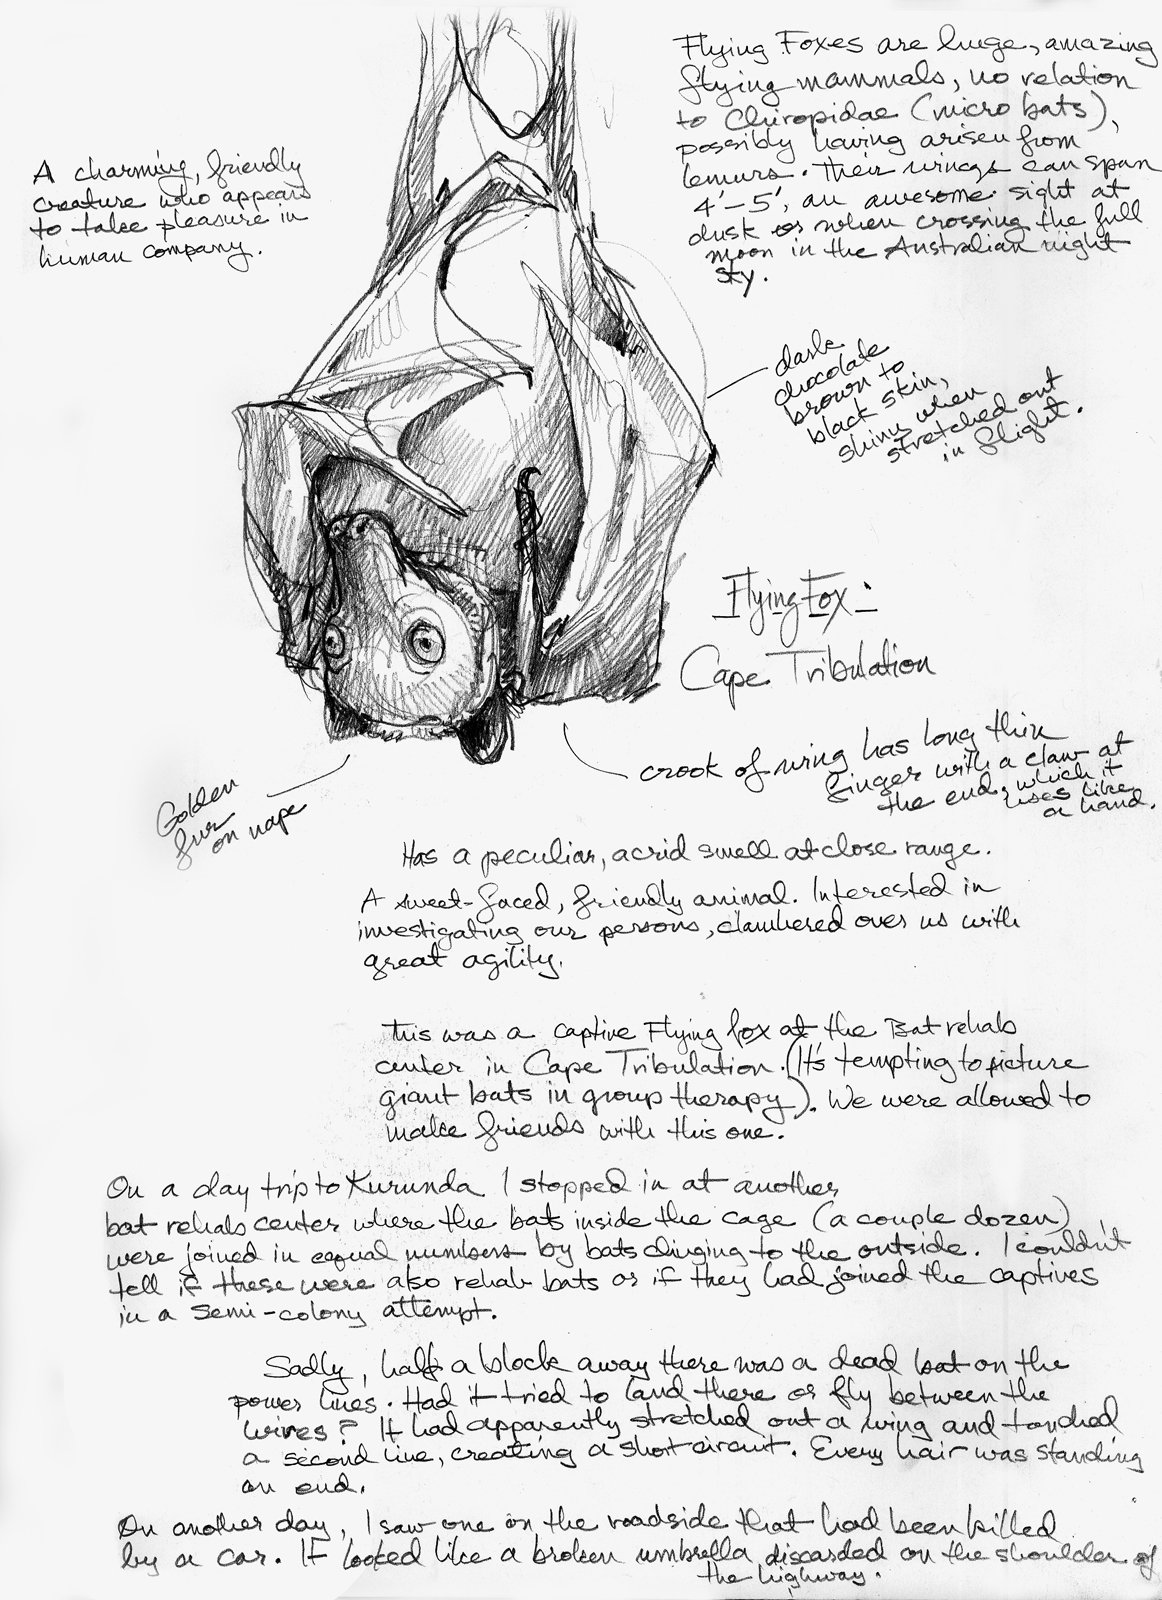 Flying Foxes are huge, amazing
flying mammals, no relation
to Chiropidae (micro bats),
possibly having arisen from
lemurs. Their wings can span
4'-5', an awesome sight at
dusk or when crossing the full
moon in the Australian night
sky.
A charming, friendly
creature who appears
to take pleasure in
human company.
dark
chocolate
brown to
black skin,
shiny when
stretched out
in flight.
Flying Fox:
Cape Tribulation
crook of wing has long thin
finger with a claw at
the end, which it
uses like
a hand.
Golden
fur
on nape
Has a peculiar, acrid smell at close range.
A sweet-faced, friendly animal. Interested in
investigating our persons, clambered over us with
great agility.
This was a captive Flying fox at the Bat rehab
center in Cape Tribulation. (It's tempting to picture
giant bats in group therapy). We were allowed to
make friends with this one.
On a day trip to Kurunda I stopped in at another
bat rehab center where the bats inside the cage (a couple dozen)
were joined in equal numbers by bats clinging to the outside. I couldn't
tell if these were also rehab bats or if they had joined the captives
in a semi-colony attempt.
Sadly, half a block away there was a dead bat on the
power lines. Had it tried to land there or fly between the
wires? It had apparently stretched out a wing and touched
a second line, creating a short circuit. Every hair was standing
on end.
On another day, I saw one on the roadside that had been killed
by a car. It looked like a broken umbrella discarded on the shoulder of
the highway.